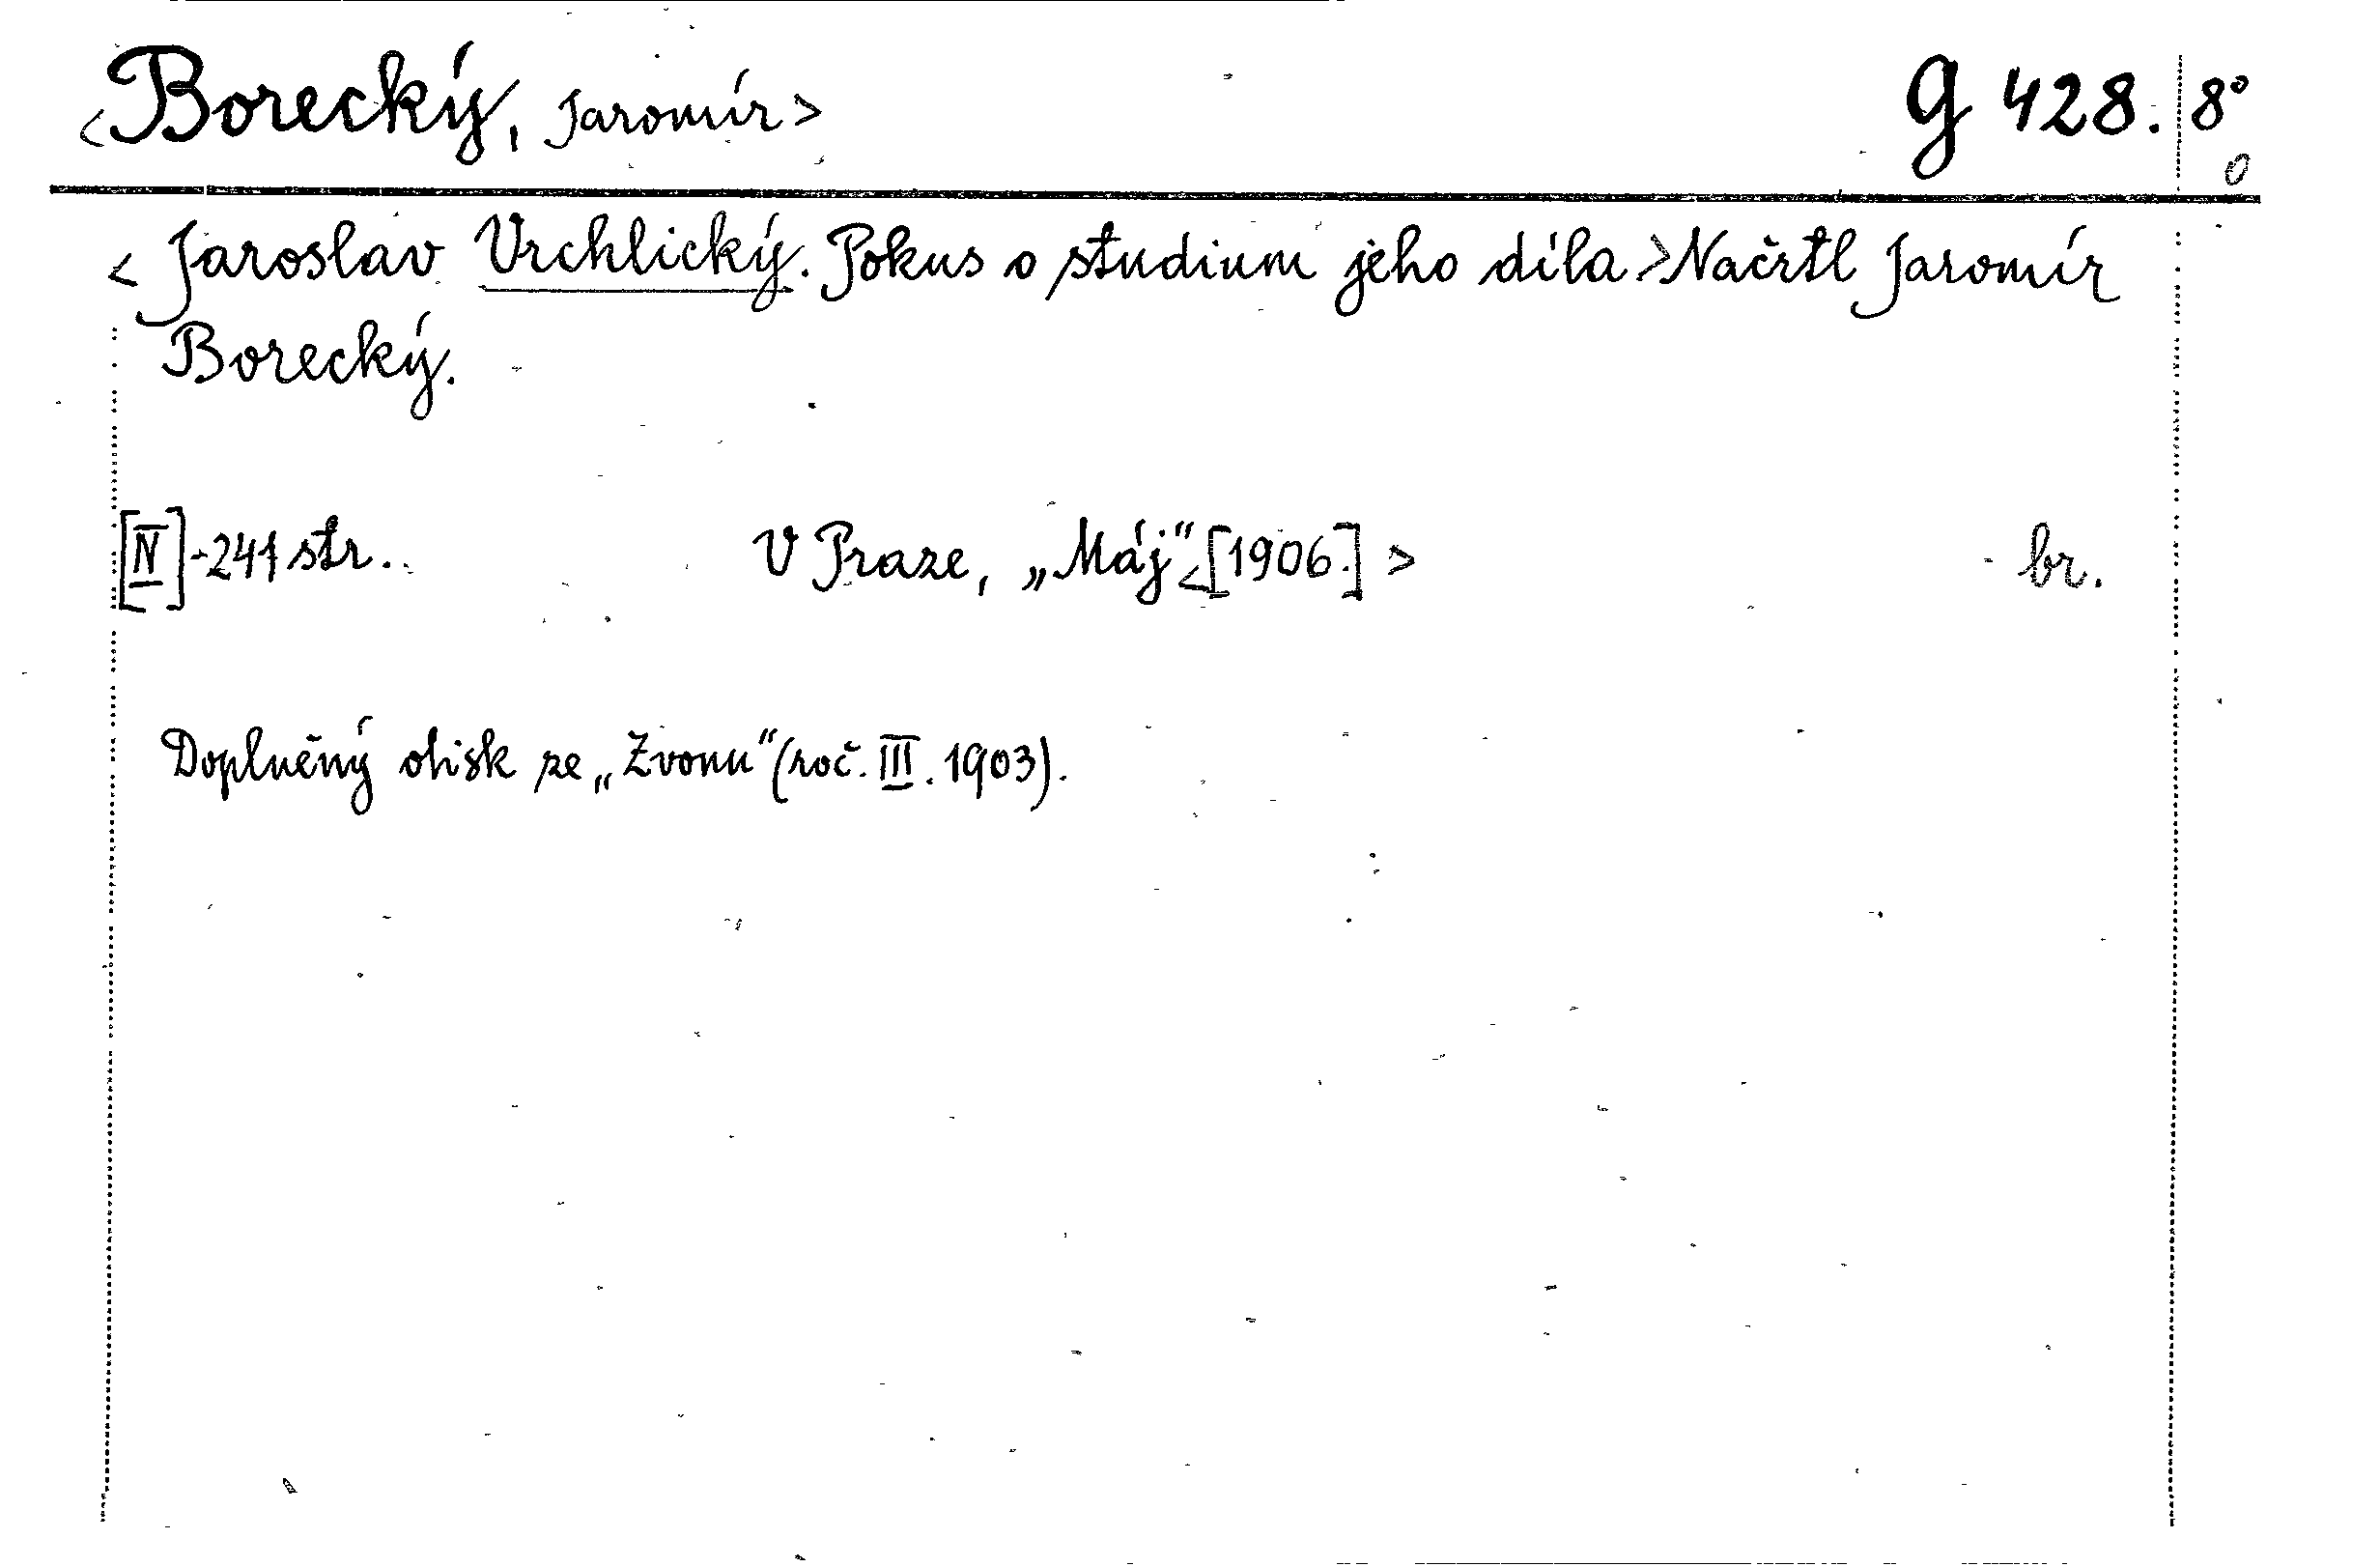 <Borecký, Jaromír> G 428. 8°
0
<Jaroslav Vrchlický. Pokus o studium jeho díla> Načrtl Jaromír
Borecký.
[IV]-241 str. V Praze, „Máj“ <[1906]> br.
Doplněný otisk ze „Zvonu“ (roč. III. 1903).